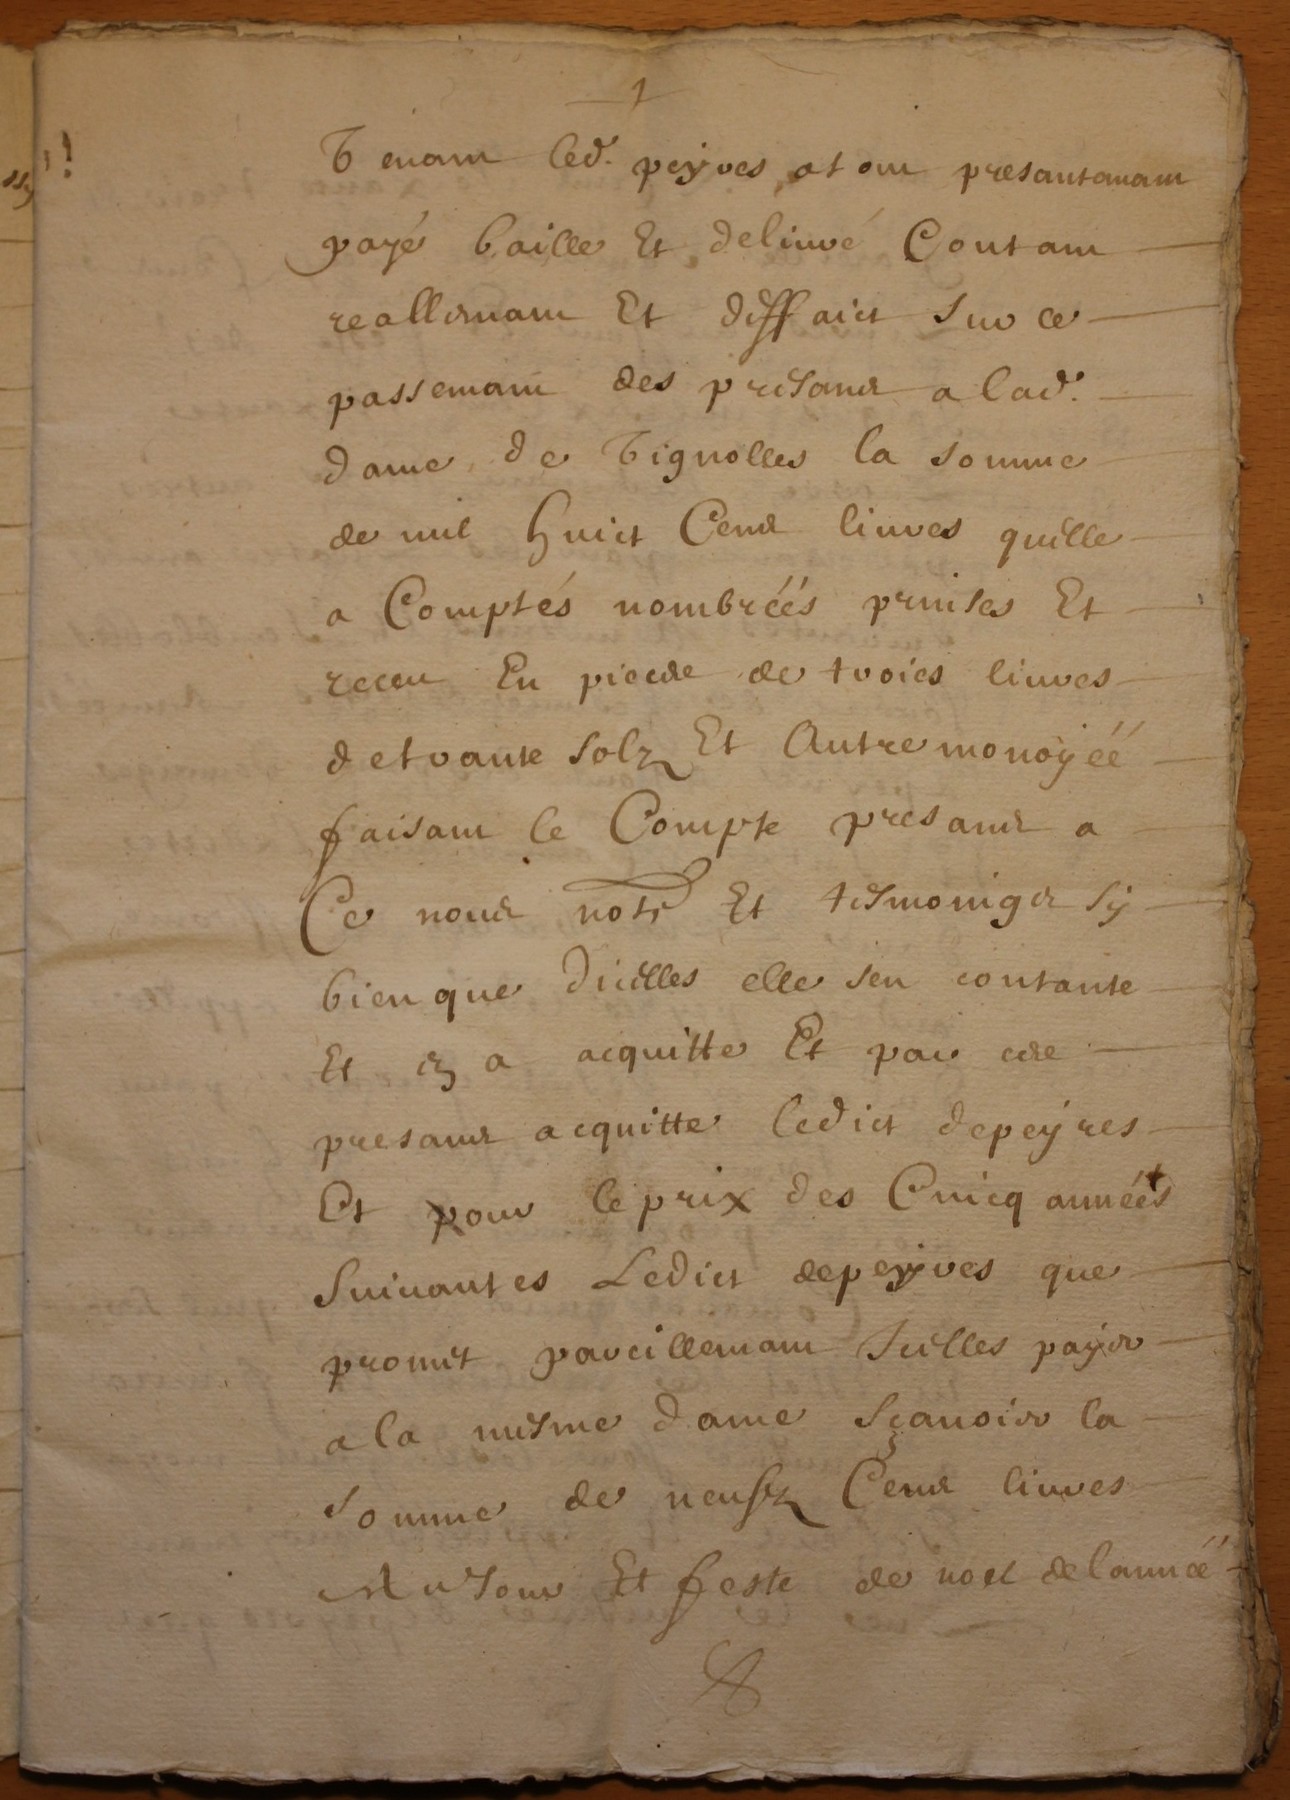 1
Tenant led. peyres a tout presantamant
payé baille Et deliuré Contant
reallemant Et deffaict sur ce
passemant des presans a lad.
dame de Vignolles la somme
de mil huict Cens liures quelle
a Comptés nombréés prinses Et
receu En pieces de trois liures
de trante solz Et Autre monoyéé
faisant le Compte presans a
Ce nous notre Et tesmoings sy
bien que dicelles elle sen contante
Et en a acquitte Et par ces
presans acquitte ledict depeyres
Et pour le prix des Cincq annéés
Suiuantes Ledict depeyres que
promet pareillemant Icelles payer
a la mesme dame sçauoir la
somme de neufz Cens liures
Au Jour Et feste de noel de lannéé